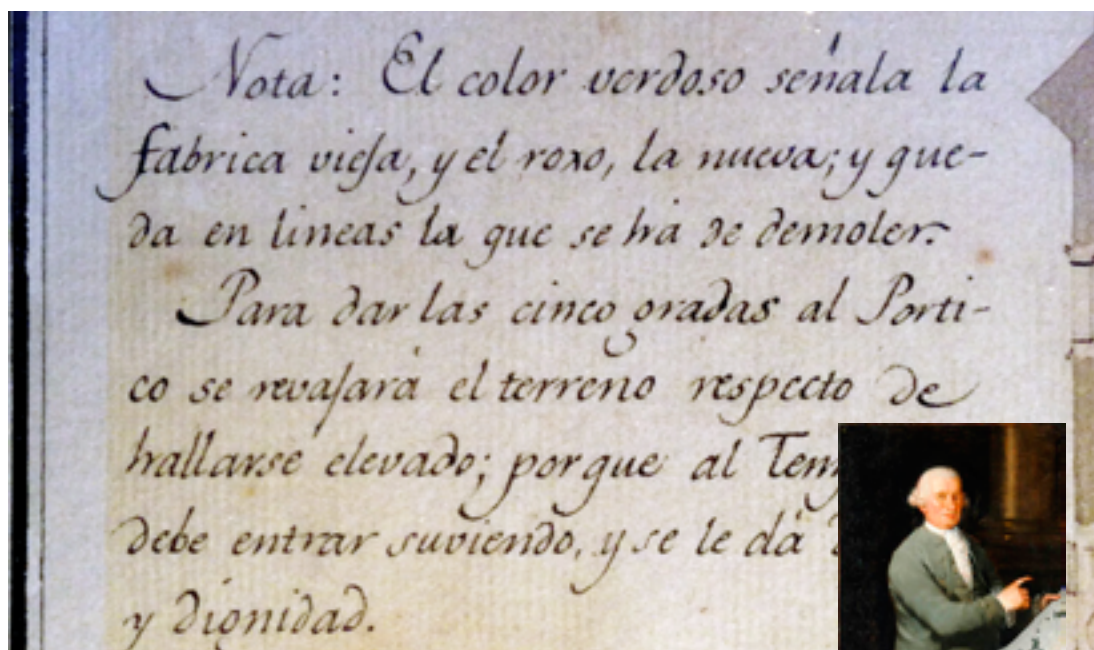 Nota: El color verdoso señala la
fabrica vieja, y el roxo, la nueva; y que-
da en lineas la que se há de demoler.
Para dar las cinco gradas al Porti-
co se revajará el terreno respecto de
hallarse elevado; porque al
debe entrar suviendo, y se le dá
y dignidad.